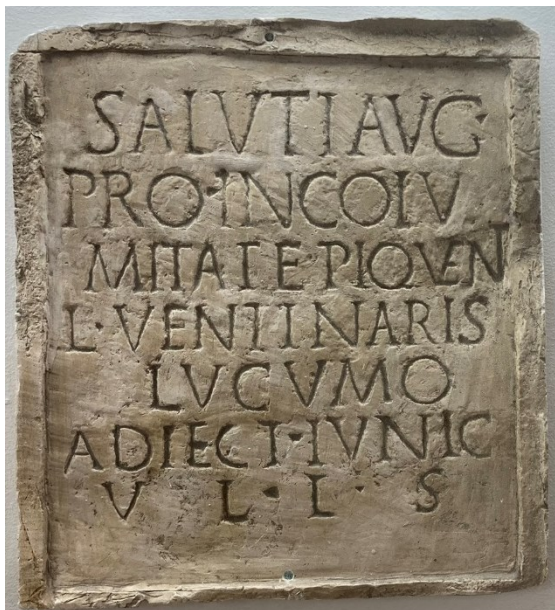 SALVTI AVG
PRO·INCOLV
MITATE PIQVEN
L·VENTINARIS
LVCVMO
ADIECT·IVNIC
V L·L· S